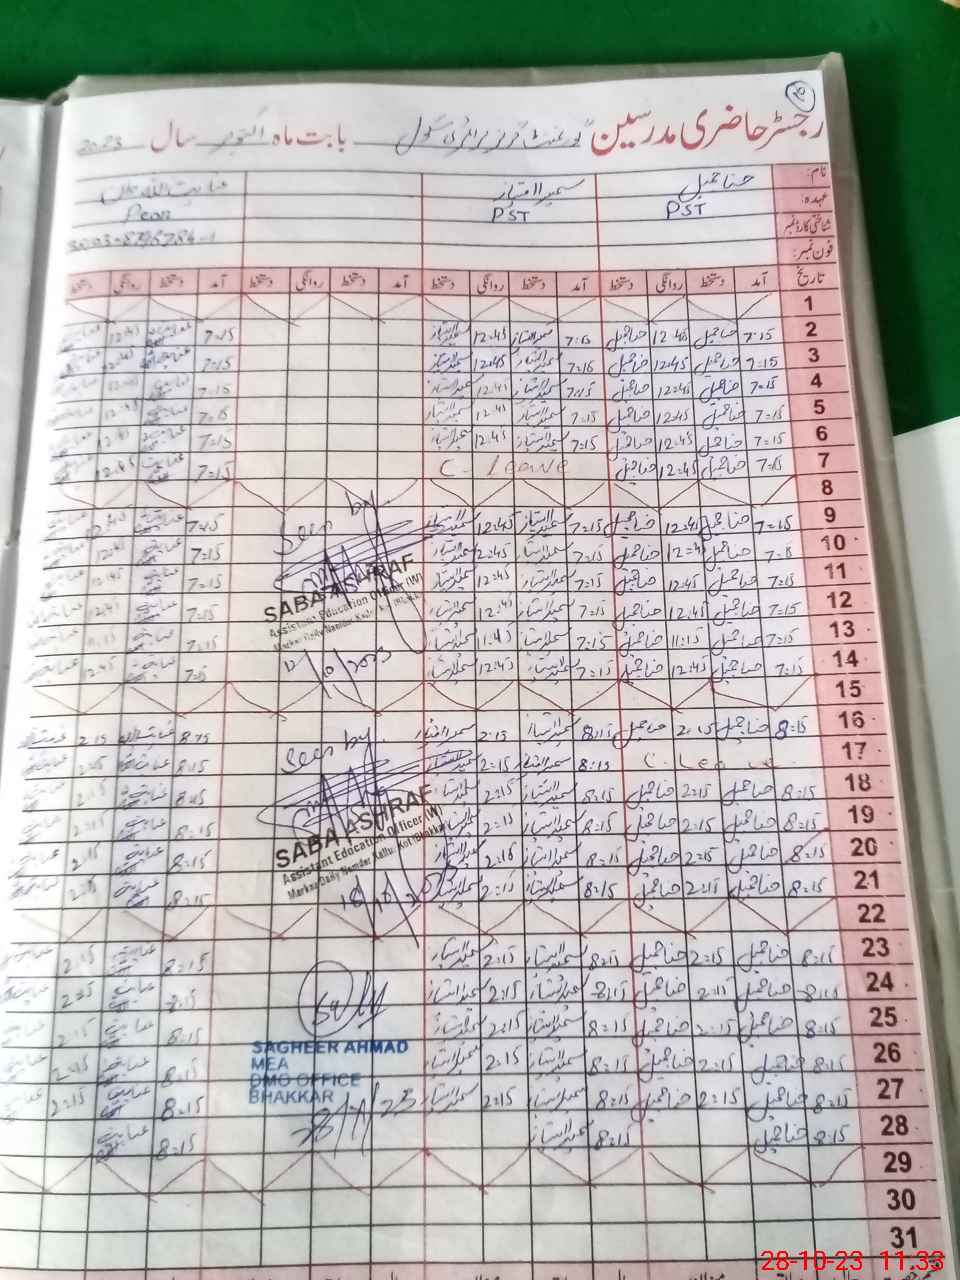 ۲۵
رجسٹر حاضری مدرسین گورنمنٹ گرلز پرائمری سکول بابت ماہ اکتوبر سال 2023
نام: حنا جمیل سمیرا امتیاز عنایت اللہ
عہدہ: PST PST Peon
شناختی کارڈ نمبر
فون نمبر:
تاریخ آمد دستخط روانگی دستخط آمد دستخط روانگی دستخط آمد دستخط روانگی دستخط آمد دستخط روانگی دستخط
1
2 7:15 حنا جمیل 12:45 حنا جمیل 7:15 سمیرا امتیاز 12:45 سمیرا امتیاز 7:15 12:45
3 7:15 حنا جمیل 12:45 حنا جمیل 7:15 سمیرا امتیاز 12:45 سمیرا امتیاز 7:15 12:45
4 7:15 حنا جمیل 12:45 حنا جمیل 7:15 سمیرا امتیاز 12:45 سمیرا امتیاز 7:15 12:45
5 7:15 حنا جمیل 12:45 حنا جمیل 7:15 سمیرا امتیاز 12:45 سمیرا امتیاز 7:15 12:45
6 7:15 حنا جمیل 12:45 حنا جمیل 7:15 سمیرا امتیاز 12:45 سمیرا امتیاز 7:15 12:45
7 7:15 حنا جمیل 12:45 حنا جمیل C. Leave 7:15 12:45
8
9 7:15 حنا جمیل 12:45 حنا جمیل 7:15 سمیرا امتیاز 12:45 سمیرا امتیاز Seen by 7:15 12:45
10 7:15 حنا جمیل 12:45 حنا جمیل 7:15 سمیرا امتیاز 12:45 سمیرا امتیاز 7:15 12:45
11 7:15 حنا جمیل 12:45 حنا جمیل 7:15 سمیرا امتیاز 12:45 سمیرا امتیاز 7:15 12:45
SABA ASHRAF
Assistant Education Officer (W)
12 7:15 حنا جمیل 12:45 حنا جمیل 7:15 سمیرا امتیاز 12:45 سمیرا امتیاز 7:15 12:45
13 7:15 حنا جمیل 11:15 حنا جمیل 7:15 سمیرا امتیاز 11:45 سمیرا امتیاز 7:15
14 7:15 حنا جمیل 12:45 حنا جمیل 7:15 سمیرا امتیاز 12:45 سمیرا امتیاز 7:15 12:45
15
16 8:15 حنا جمیل 2:15 حنا جمیل 8:15 سمیرا امتیاز 2:15 سمیرا امتیاز Seen by 8:15 2:15
17 C. Leave 8:15 سمیرا امتیاز 2:15 سمیرا امتیاز 8:15 2:15
18 8:15 حنا جمیل 2:15 حنا جمیل 8:15 سمیرا امتیاز 2:15 سمیرا امتیاز 8:15 2:15
SABA ASHRAF
Assistant Education Officer (W)
19 8:15 حنا جمیل 2:15 حنا جمیل 8:15 سمیرا امتیاز 2:15 سمیرا امتیاز 8:15 2:15
20 8:15 حنا جمیل 2:15 حنا جمیل 8:15 سمیرا امتیاز 2:15 سمیرا امتیاز 8:15 2:15
21 8:15 حنا جمیل 2:15 حنا جمیل 8:15 سمیرا امتیاز 2:15 سمیرا امتیاز 8:15 2:15
22
23 8:15 حنا جمیل 2:15 حنا جمیل 8:15 سمیرا امتیاز 2:15 سمیرا امتیاز 8:15 2:15
24 8:15 حنا جمیل 2:15 حنا جمیل 8:15 سمیرا امتیاز 2:15 سمیرا امتیاز 8:15 2:15
25 8:15 حنا جمیل 2:15 حنا جمیل 8:15 سمیرا امتیاز 2:15 سمیرا امتیاز 8:15 2:15
SAGHEER AHMAD
MEA
DMO OFFICE
BHAKKAR
26 8:15 حنا جمیل 2:15 حنا جمیل 8:15 سمیرا امتیاز 2:15 سمیرا امتیاز 8:15 2:15
27 8:15 حنا جمیل 2:15 حنا جمیل 8:15 سمیرا امتیاز 2:15 سمیرا امتیاز 8:15 2:15
28 8:15 حنا جمیل 8:15 سمیرا امتیاز 8:15
29
30
31
28-10-23 11:33